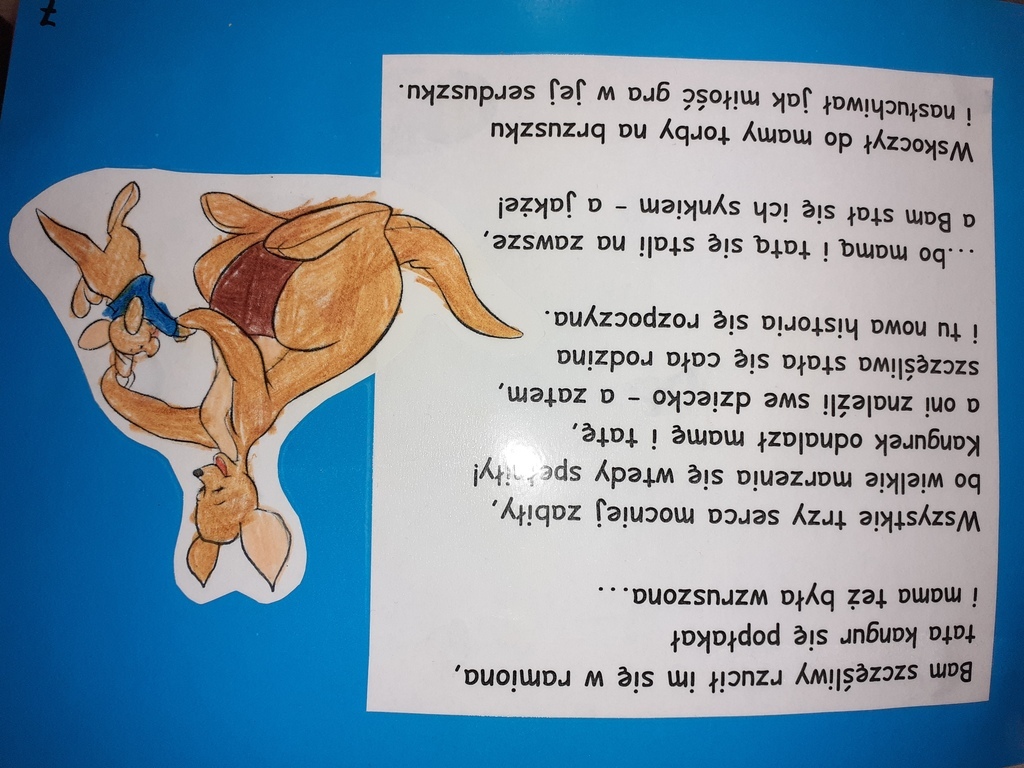 Bam szczęśliwy rzucił im się w ramiona,
tata kangur się popłakał
i mama też była wzruszona...
Wszystkie trzy serca mocniej zabiły,
bo wielkie marzenia się wtedy spełniły!
Kangurek odnalazł mamę i tatę,
a oni znaleźli swe dziecko - a zatem,
szczęśliwa stała się cała rodzina
i tu nowa historia się rozpoczyna.
...bo mamą i tatą się stali na zawsze,
a Bam stał się ich synkiem - a jakże!
Wskoczył do mamy torby na brzuszku
i nasłuchiwał jak miłość gra w jej serduszku.
7